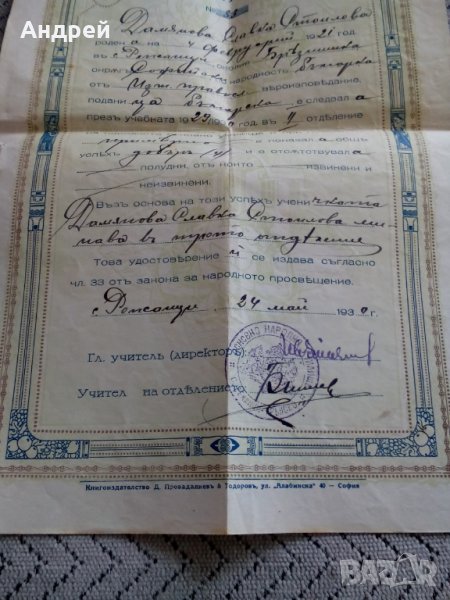 Андрей
№
Дамянова Славка Стоилова
роден а на 4 февруарий 1921 год
въ с. околия
окрѫгъ Софийска народность българска
отъ Изт. правосл. вѣроизповѣдание,
подани ца българска е следвал а
презъ учебната 1929 год въ II отдѣление
и показал а общъ
успѣхъ добъръ и е отсѫтствувал а
полудни, отъ които извинени и
неизвинени.
Възъ основа на този успѣхъ учени чката
Дамянова Славка Стоилова ми-
нава въ трето отдѣление
Това удостовѣрение й се издава съгласно
чл. 33 отъ закона за народното просвѣщение.
с. 24 май 1930 г.
Гл. учитель (директоръ):
Учител на отдѣлението:
Книгоиздателство Д. Провадалиев & Тодоровъ, ул. „Алабинска" 40 — София
BAZAR